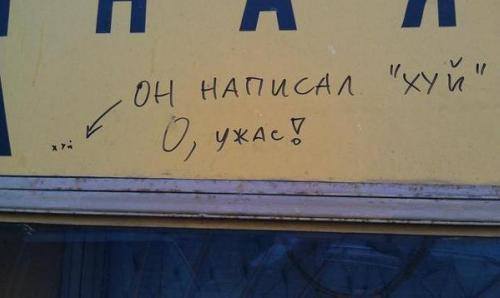 НАЯ
ОН НАПИСАЛ "ХУЙ"
хуй
О, УЖАС!